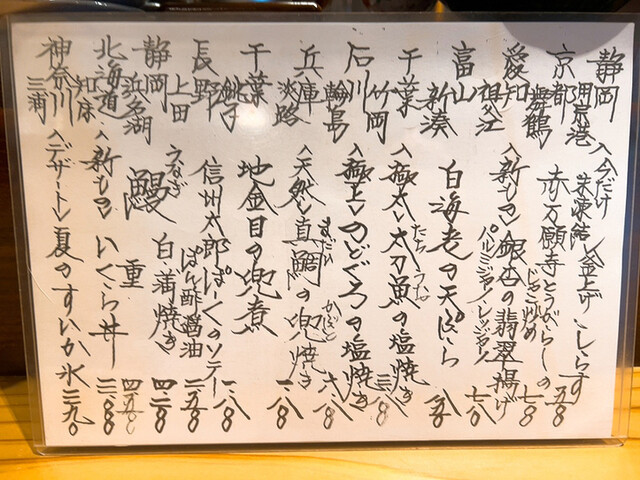 静岡 用宗港 〈今だけ 未凍結〉釜上げしらす 五八〇
京都 舞鶴 赤万願寺とうがらしのじゃこ炒め 七八〇
愛知 祖父江 〈新もの〉銀杏の翡翠揚げ パルミジャーノレッジャーノ 七八〇
富山 新湊 白海老の天ぷら
千葉 竹岡 〈極太〉太刀魚の塩焼き たちうお
石川 輪島 〈極上〉のどぐろの塩焼き
兵庫 淡路 〈天然〉真鯛の兜焼き まだい かぶと
千葉 銚子 地金目の兜煮
長野 上田 信州太郎ぽーくのソテー ぽん酢醤油
静岡 浜名湖 うなぎ 鰻 白蒲焼き 重
北海道 知床 〈新もの〉いくら丼
神奈川 三浦 〈デザート〉夏のすいか氷 三九〇